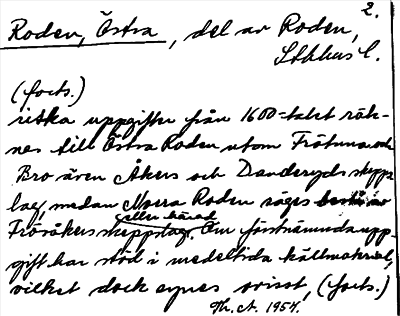 2.
Roden, Östra, del av Roden,
Sthlms l.
(forts.)
ristka uppgifter från 1600-talet räk-
nas till Östra Roden utom Frötuna och
Bro även Åkers och Danderyds skepps
lag, medan Norra Roden säges bestå av
Frösåkers skeppslag eller härad. Om förstnämnda upp-
gift har stöd i medeltida källmaterial,
vilket dock synes ovisst, (forts.)
Th. A. 1957.